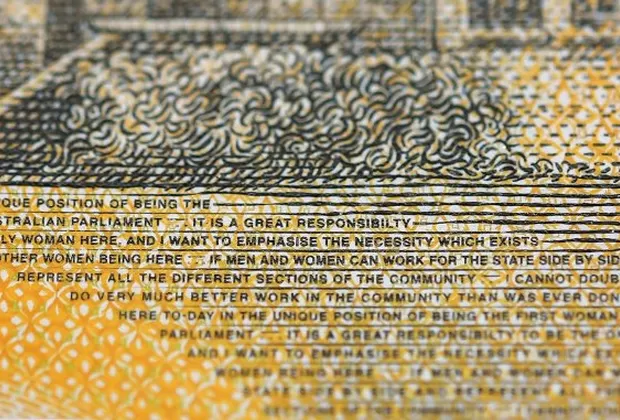 QUE POSITION OF BEING THE
STRALIAN PARLIAMENT ... IT IS A GREAT RESPONSIBILTY
LY WOMAN HERE, AND I WANT TO EMPHASISE THE NECESSITY WHICH EXISTS
OTHER WOMEN BEING HERE ... IF MEN AND WOMEN CAN WORK FOR THE STATE SIDE BY SID
REPRESENT ALL THE DIFFERENT SECTIONS OF THE COMMUNITY ... CANNOT DOUB
DO VERY MUCH BETTER WORK IN THE COMMUNITY THAN WAS EVER DON
HERE TO-DAY IN THE UNIQUE POSITION OF BEING THE FIRST WOMAN
PARLIAMENT ... IT IS A GREAT RESPONSIBILTY TO BE THE O
AND I WANT TO EMPHASISE THE NECESSITY WHICH EX
WOMEN BEING HERE ... IF MEN AND WOMEN CAN
STATE SIDE BY SIDE AND REPRESENT ALL THE